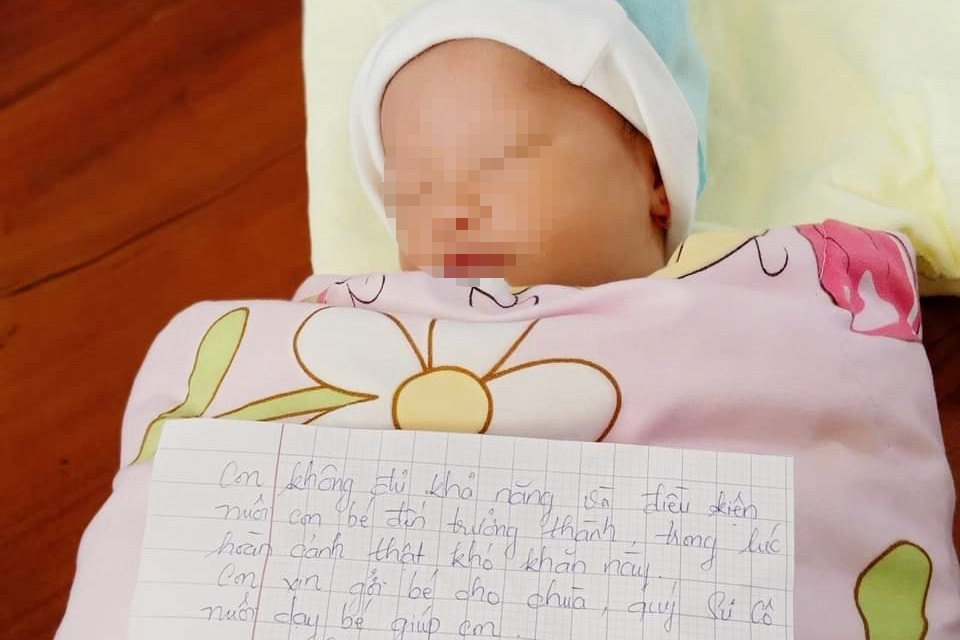 Con không đủ khả năng và điều kiện
nuôi con bé đến trưởng thành, trong lúc
hoàn cảnh thật khó khăn này.
Con xin gởi bé cho chùa, quý Sư Cô
nuôi dạy bé giúp con.